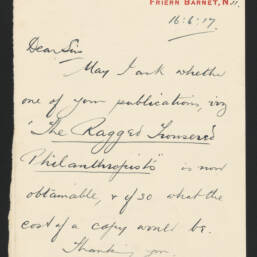 FRIERN BARNET, N.11.
16.6.17.
Dear Sir
May I ask whether
one of your publications, viz
"The Ragged Trousered
Philanthropists" is now
obtainable, & if so what the
cost of a copy would be.
Thanking you